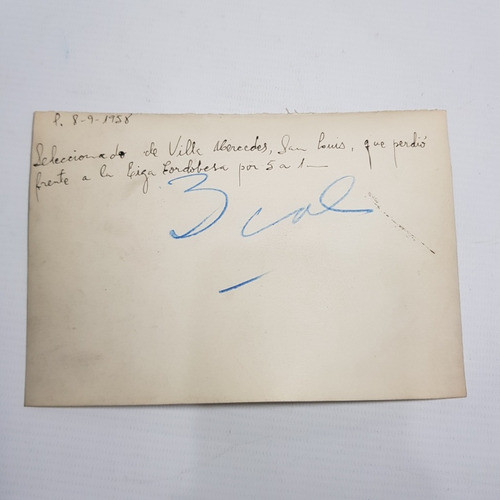 P. 8-9-1958
Seleccionado de Villa Mercedes, San Luis, que perdió
frente a la Liga Cordobesa por 5 a 1—
3 col